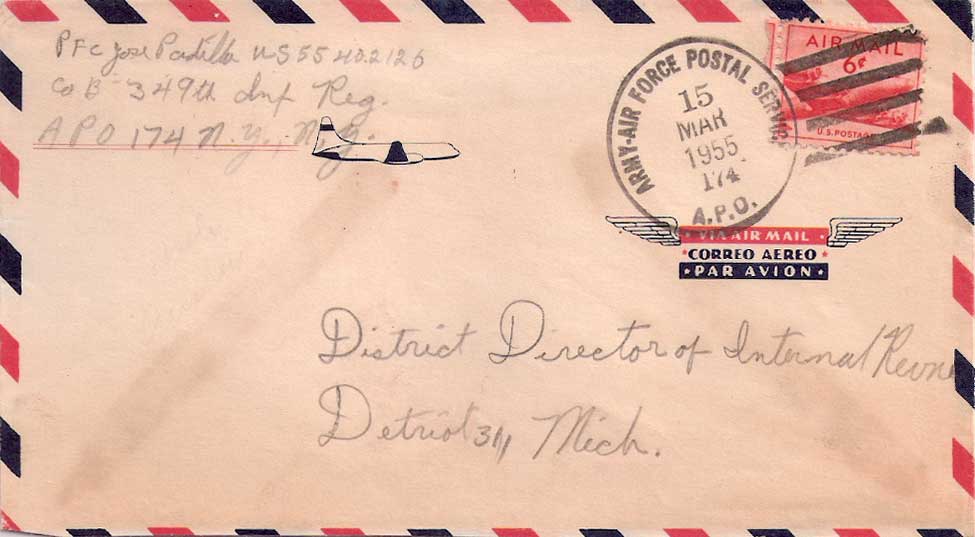 PFC Jose Padilla US 55 402126
Co B - 349th Inf Reg.
APO 174 N.Y., N.Y.
ARMY-AIR FORCE POSTAL SERVICE
15
MAR
1955
174
A.P.O.
AIR MAIL
6¢
U.S. POSTAGE
VIA AIR MAIL
CORREO AEREO
PAR AVION
District Director of Internal Revne
Detriot 31, Mich.